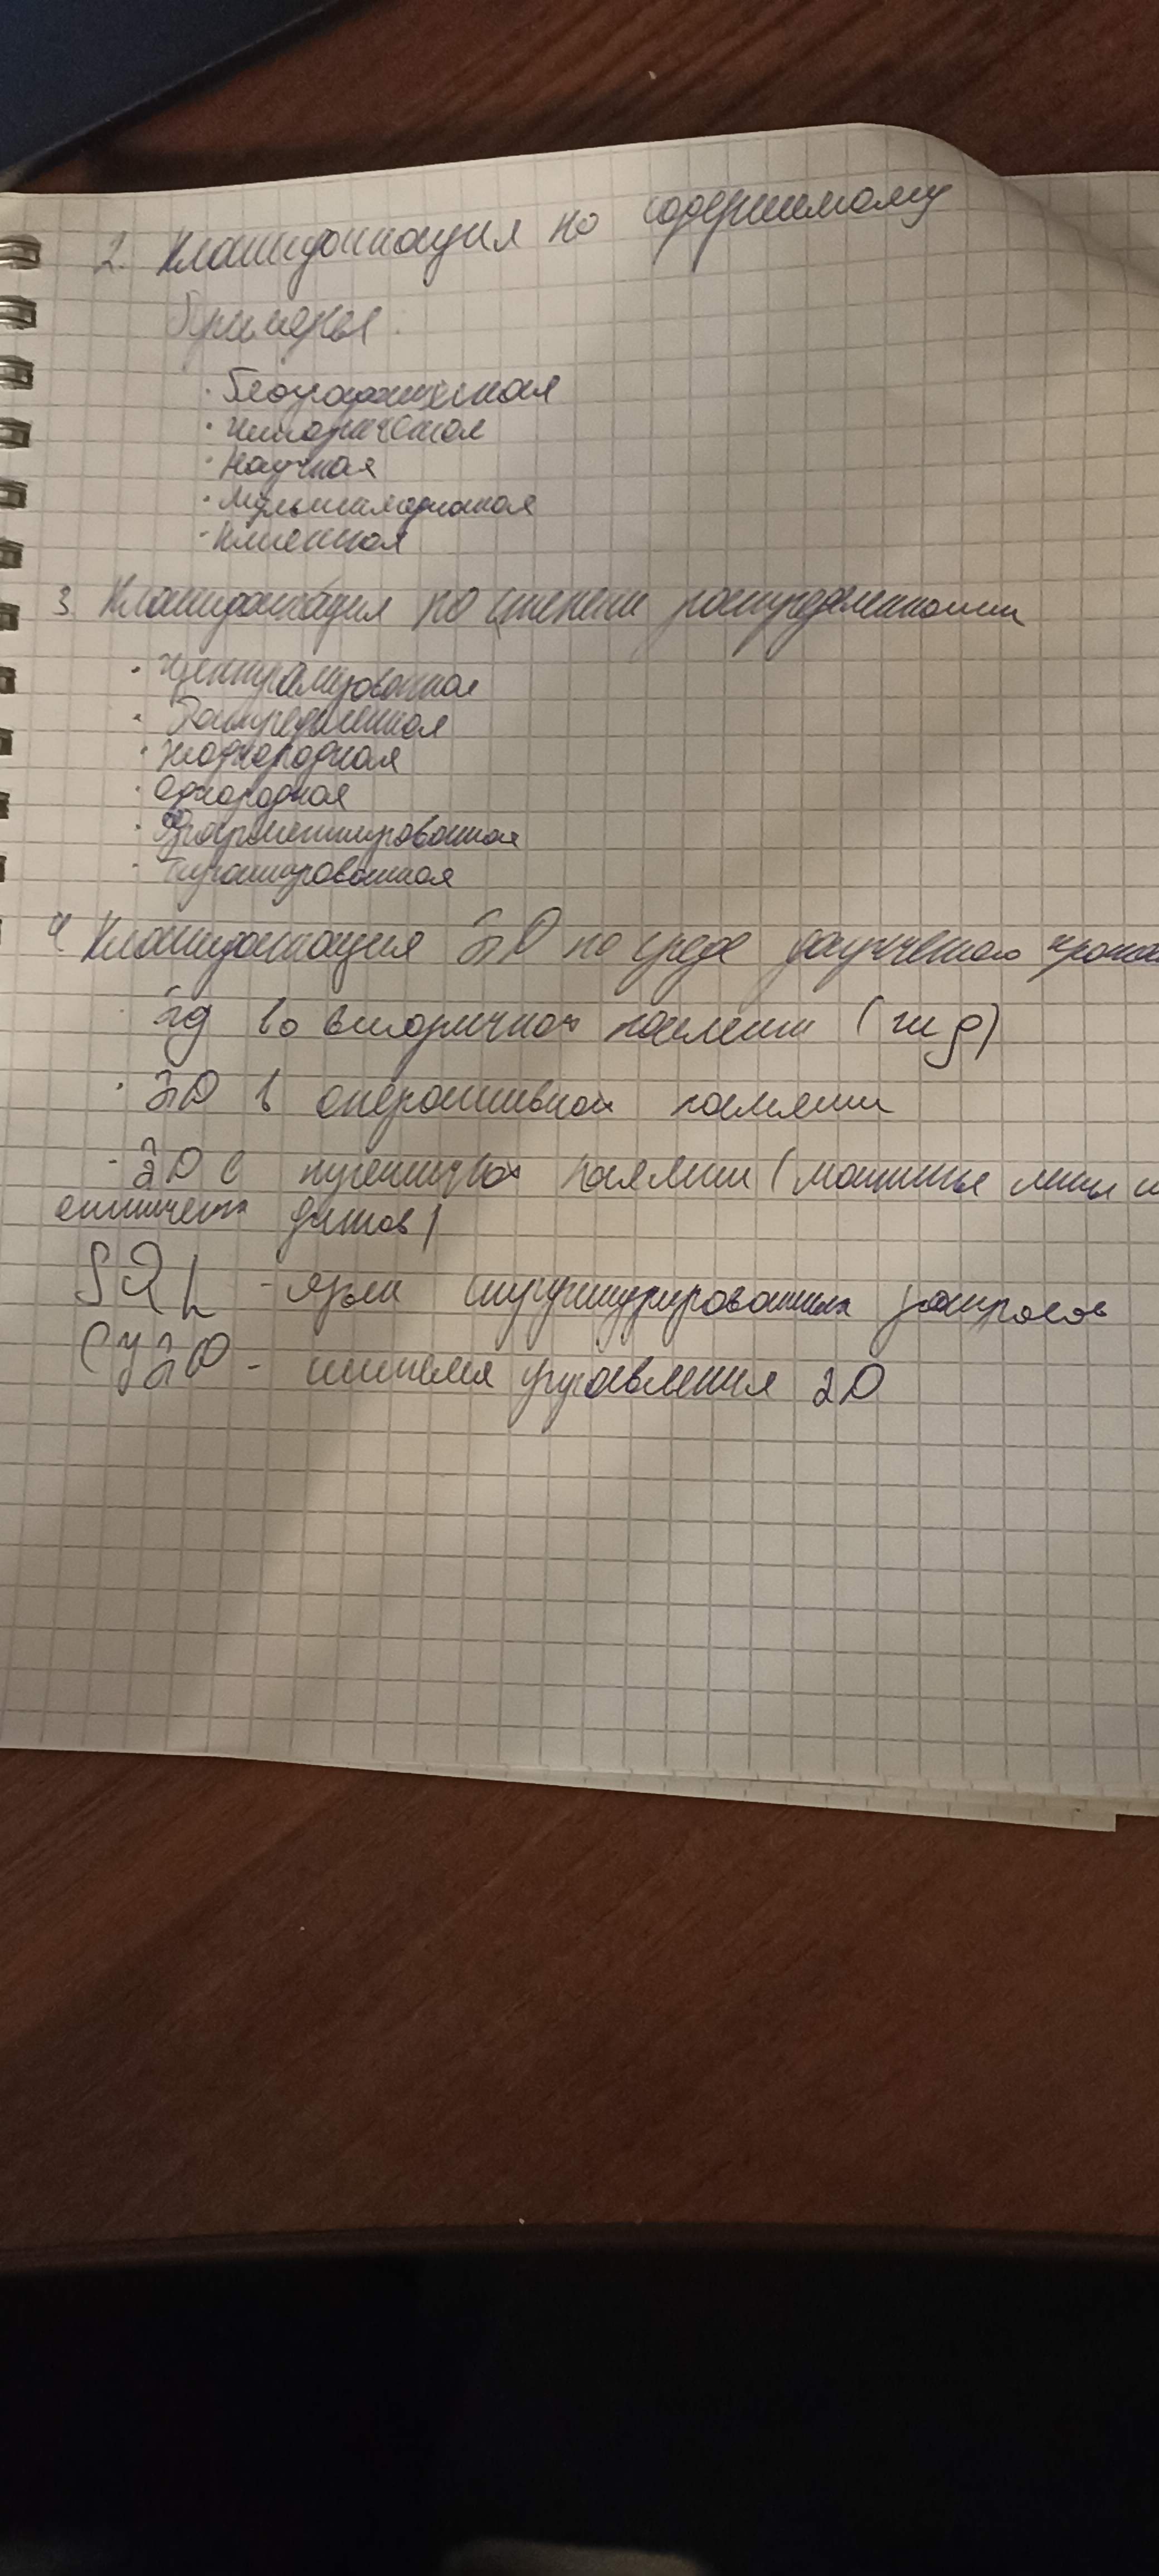 2. Классификация по содержимому
Примеры:
· Географическая
· Историческая
· Научная
· Мультимедийная
· Клиентская
3. Классификация по степени распределенности
· Централизованная
· Распределенная
· Неоднородная
· Однородная
· Фрагментированная
· Тиражированная
4. Классификация БД по среде
· БД во вторичной памяти
· БД в оперативной памяти
· БД в третичной памяти (
дисков)
SQL - язык структурированных запросов
СУБД - система управления БД